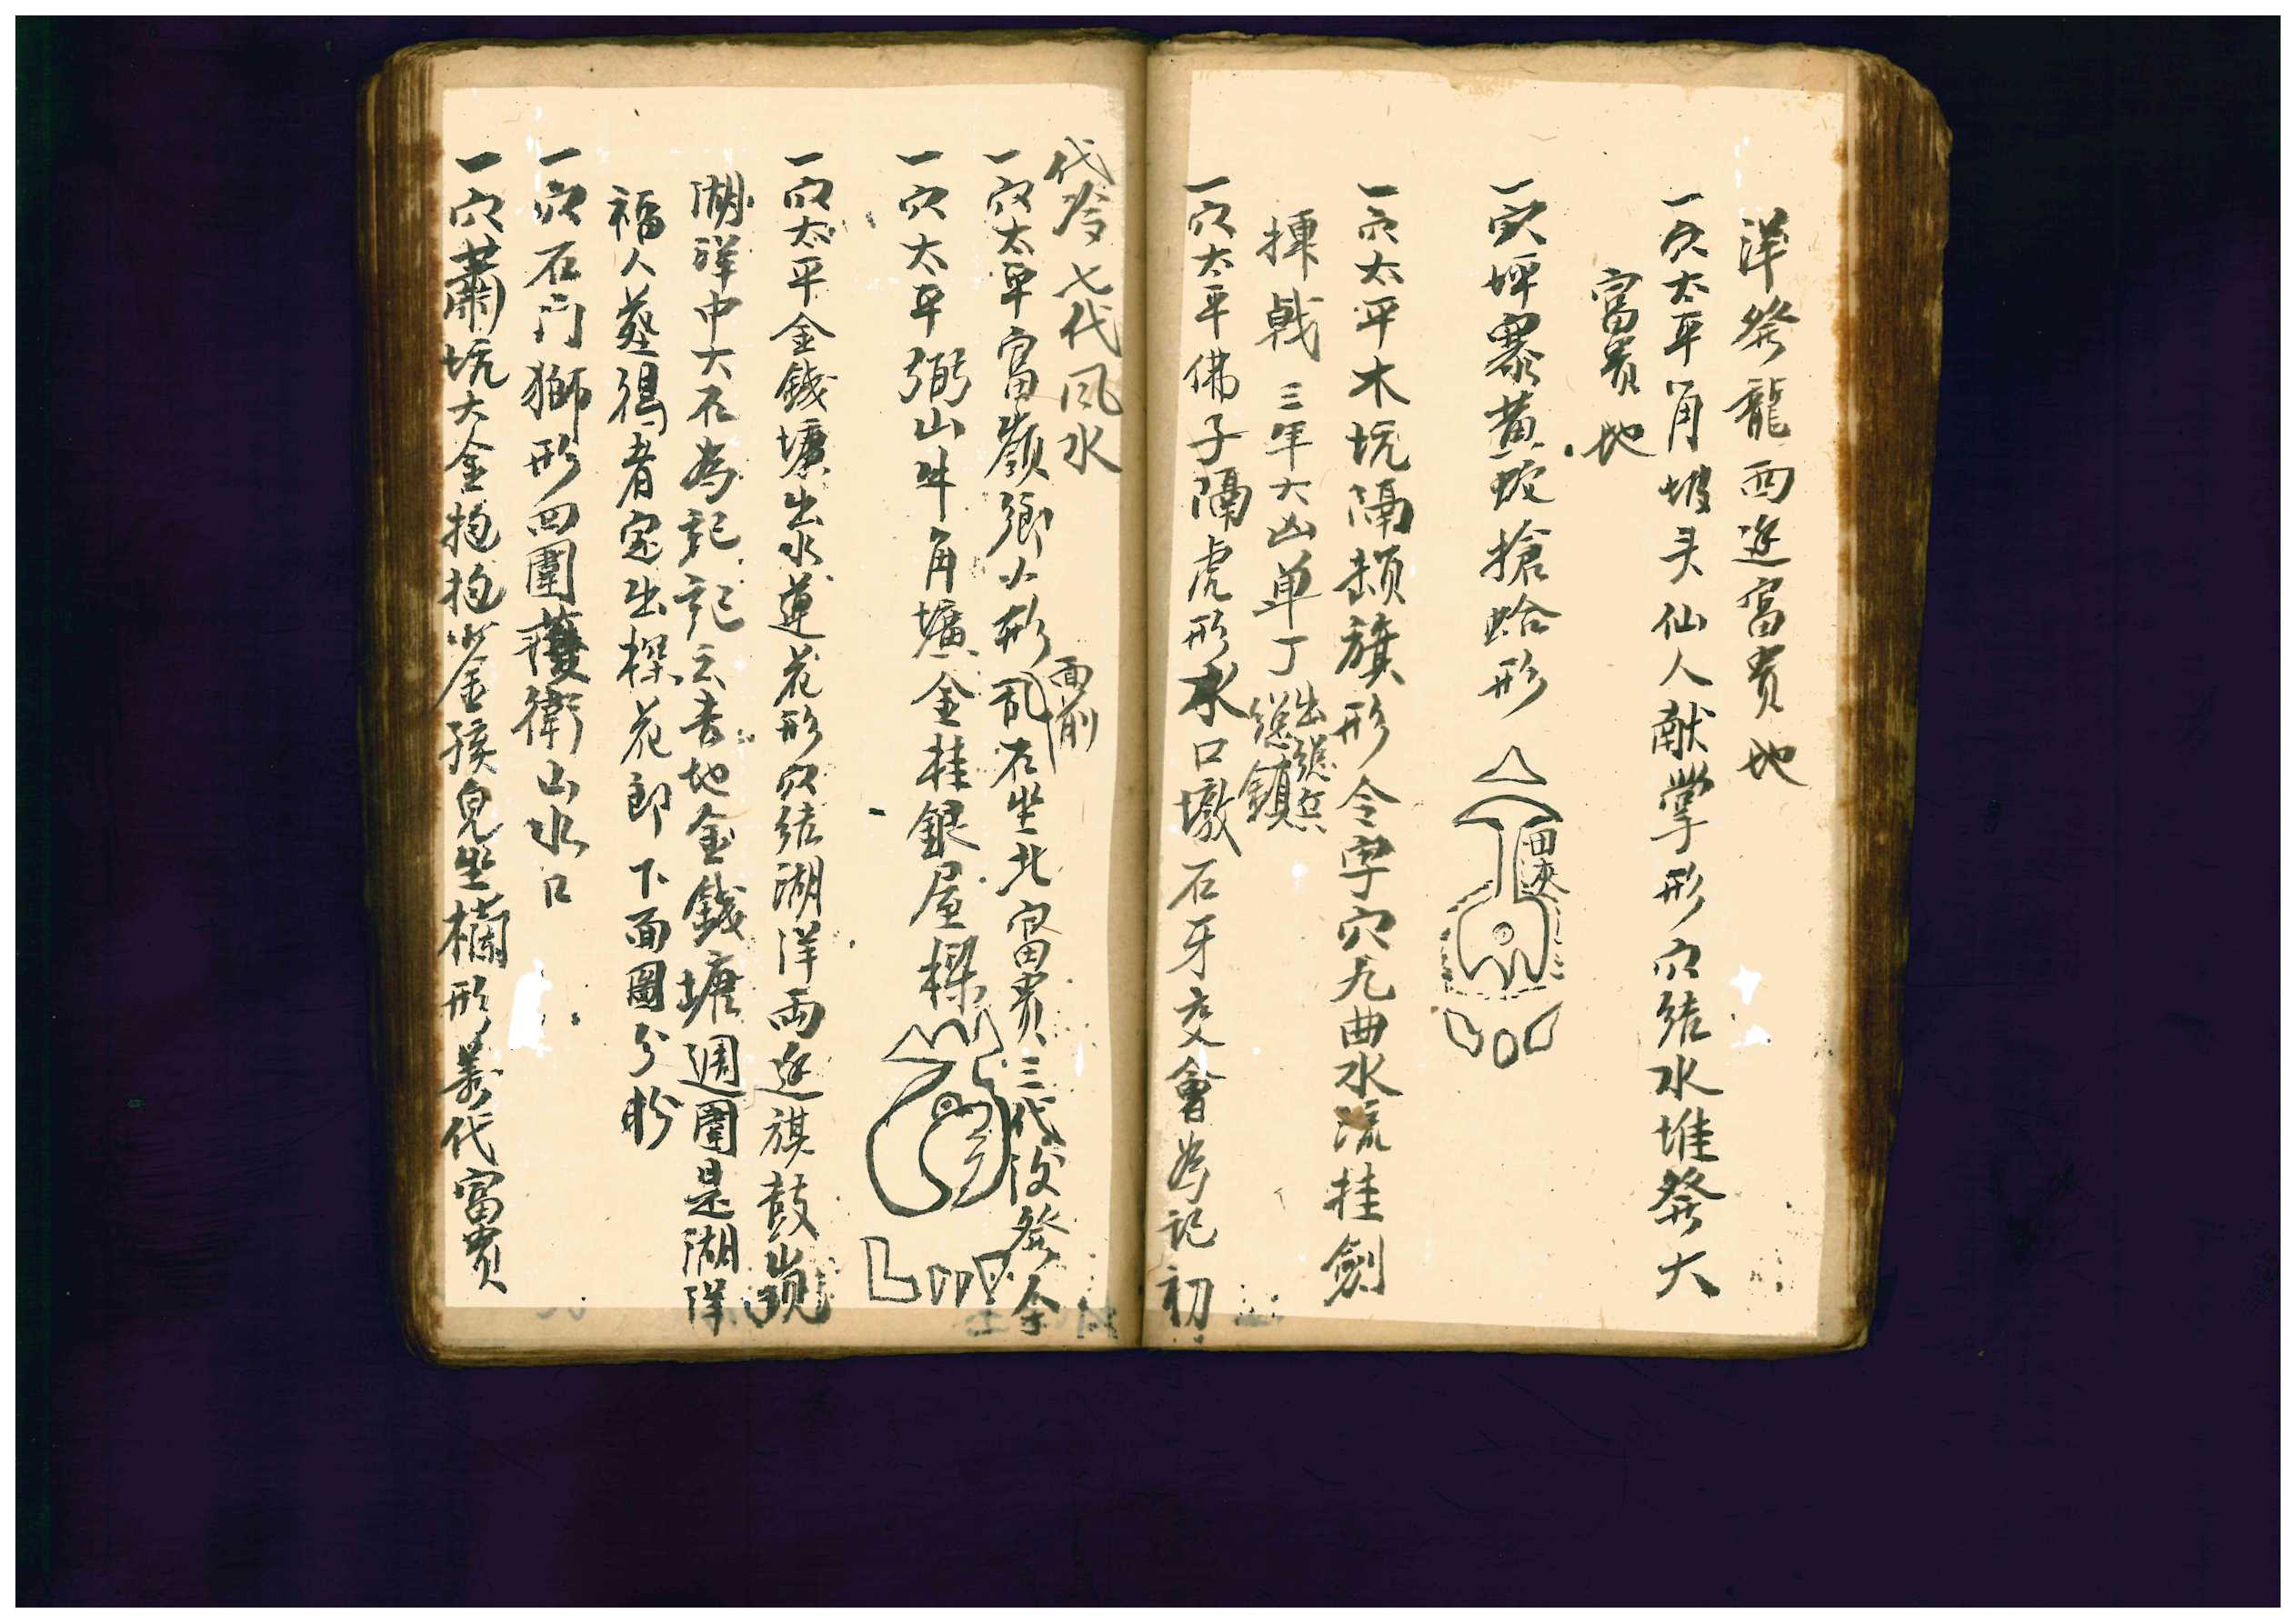 洋發龍西边富貴地
一穴太平角坡头仙人献掌形穴结水堆發大
富貴地
一穴坪寨黄蛇搶蛤形
田夾
一穴太平木坑隔頭旗形令字穴九曲水流挂劍
揀戟三年大凶单丁
出総兵
総鎮
一穴太平佛子隔虎形水口墩石牙交會為記初
代發七代風水
一穴太平富嶺鄉火形乱石坐北富貴三代後發余
面前
一穴太平獅山牛角壙金柱銀屋樑
一穴太平金錢壙出水蓮花形穴结湖洋両边旗鼓
湖洋中大石為記記云吉地金錢塘週圍是湖洋
福人葬得者定出探花郎下面圖分彩
一穴石门獅形四圍護衛山水口
一穴蕭坑大金抱抱少金孩兒坐橋形萬代富貴